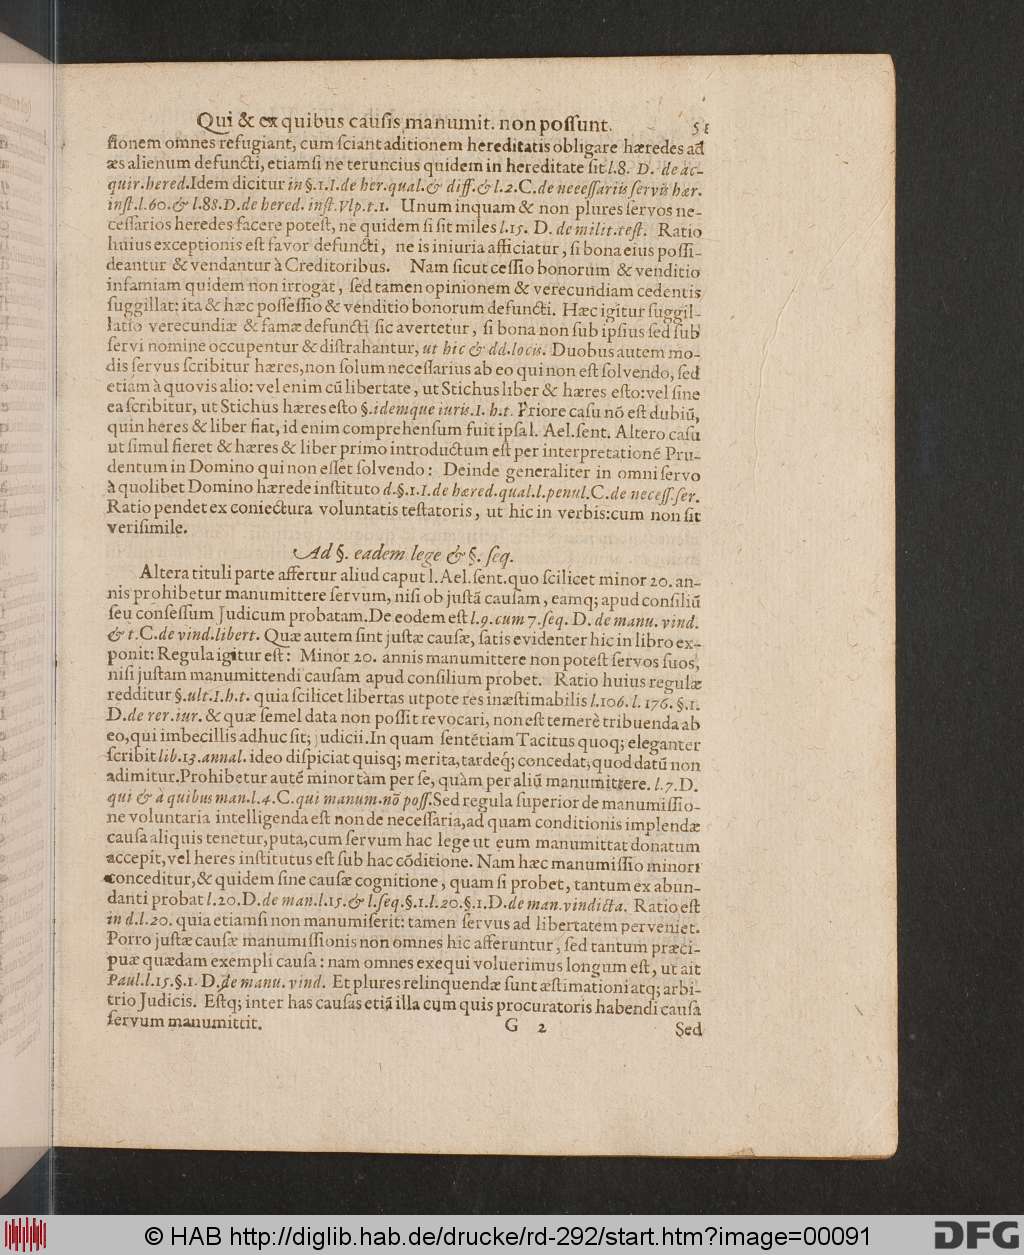 Qui & ex quibus causis manumit. non possunt. 51
ssionem omnes refugiant, cum sciant aditionem hereditatis obligare hæredes ad
æs alienum defuncti, etiamsi ne teruncius quidem in hereditate sit l.8. D. de ac-
quir.hered.Idem dicitur in §.1.I.de her.qual.& diff.& l.2.C.de necessariis servis hær.
inst.l.60.& l.88.D.de hered. inst.Vlp.t.1. Unum inquam & non plures servos ne-
cessarios heredes facere potest, ne quidem si sit miles l.15. D. de milit.test. Ratio
huius exceptionis est favor defuncti, ne is iniuria afficiatur, si bona eius possi-
deantur & vendantur à Creditoribus. Nam sicut cessio bonorum & venditio
infamiam quidem non irrogat, sed tamen opinionem & verecundiam cedentis
suggillat: ita & hæc possessio & venditio bonorum defuncti. Hæc igitur suggil-
latio verecundiæ & famæ defuncti sic avertetur, si bona non sub ipsius sed sub
servi nomine occupentur & distrahantur, ut hic & dd.locis. Duobus autem mo-
dis servus scribitur hæres,non solum necessarius ab eo qui non est solvendo, sed
etiam à quovis alio: vel enim cū libertate, ut Stichus liber & hæres esto:vel sine
ea scribitur, ut Stichus hæres esto §.idemque iuris.I. h.t. Priore casu nō est dubiū,
quin heres & liber fiat, id enim comprehensum fuit ipsa l. Ael.sent. Altero casu
ut simul fieret & hæres & liber primo introductum est per interpretationē Pru-
dentum in Domino qui non esset solvendo: Deinde generaliter in omni servo
à quolibet Domino hærede instituto d.§.1.I.de hæred.qual.l.penul.C.de necess.ser.
Ratio pendet ex coniectura voluntatis testatoris, ut hic in verbis:cum non sit
verisimile.
Ad §. eadem lege & §. seq.
Altera tituli parte affertur aliud caput l. Ael.sent.quo scilicet minor 20. an-
nis prohibetur manumittere servum, nisi ob justā causam, eamq; apud consiliū
seu consessum Judicum probatam.De eodem est l.9.cum 7.seq. D. de manu. vind.
& t.C.de vind.libert. Quæ autem sint justæ causæ, satis evidenter hic in libro ex-
ponit: Regula igitur est: Minor 20. annis manumittere non potest servos suos,
nisi justam manumittendi causam apud consilium probet. Ratio huius regulæ
redditur §.ult.I.h.t. quia scilicet libertas utpote res inæstimabilis l.106.l. 176. §.1.
D.de rer.iur. & quæ semel data non possit revocari, non est temerè tribuenda ab
eo,qui imbecillis adhuc sit; judicii.In quam sentētiam Tacitus quoq; eleganter
scribit lib.13.annal. ideo dispiciat quisq; merita,tardeq́; concedat,quod datū non
adimitur.Prohibetur autē minor tàm per se, quàm per aliū manumittere. l.7.D.
qui & à quibus man.l.4.C.qui manum.nō poss.Sed regula superior de manumissio-
ne voluntaria intelligenda est non de necessaria,ad quam conditionis implendæ
causa aliquis tenetur,puta,cum servum hac lege ut eum manumittat donatum
accepit,vel heres institutus est sub hac cōditione. Nam hæc manumissio minori
conceditur,& quidem sine causæ cognitione, quam si probet, tantum ex abun-
danti probat l.20.D.de man.l.15.& l.seq.§.1.l.20.§.1.D.de man.vindicta. Ratio est
in d.l.20. quia etiamsi non manumiserit: tamen servus ad libertatem perveniet.
Porro justæ causæ manumissionis non omnes hic afferuntur, sed tantum præci-
puæ quædam exempli causa: nam omnes exequi voluerimus longum est, ut ait
Paul.l.15.§.1. D.de manu. vind. Et plures relinquendæ sunt æstimationi atq; arbi-
trio Judicis. Estq; inter has causas etiā illa cum quis procuratoris habendi causa
servum manumittit.
G 2 Sed
© HAB http://diglib.hab.de/drucke/rd-292/start.htm?image=00091
DFG